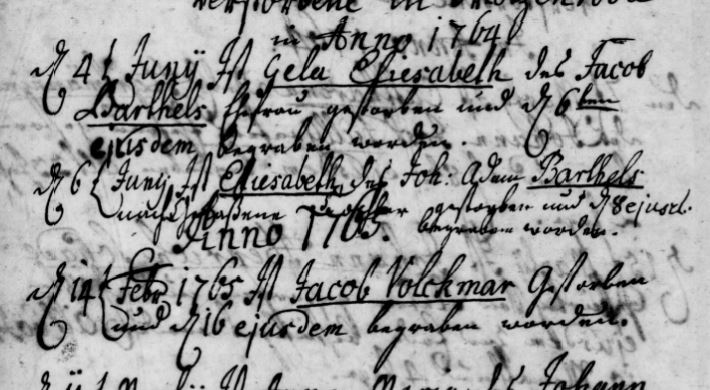 verstorbene in
in Anno 1764
d 4t Junÿ Ist Gela Eliesabeth des Jacob
Barthels Ehefrau gestorben und d 6ten
ejusdem begraben worden.
d 6t Junÿ Ist Eliesabeth, des Joh: Adam Barthels
nachgelaßene gestorben und d 8 ejusd.
Anno 1765. begraben worden.
d 14t Febr 1765 Ist Jacob Volckmar Gestorben
und d 16 ejusdem begraben worden.
Johann